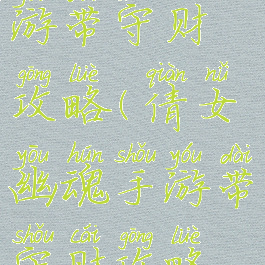 游带守财
gōng lüè qiàn nǚ
攻略(倩女
yōu hún shǒu yóu dài
幽魂手游带
shǒu cái gōng lüè
守财攻略